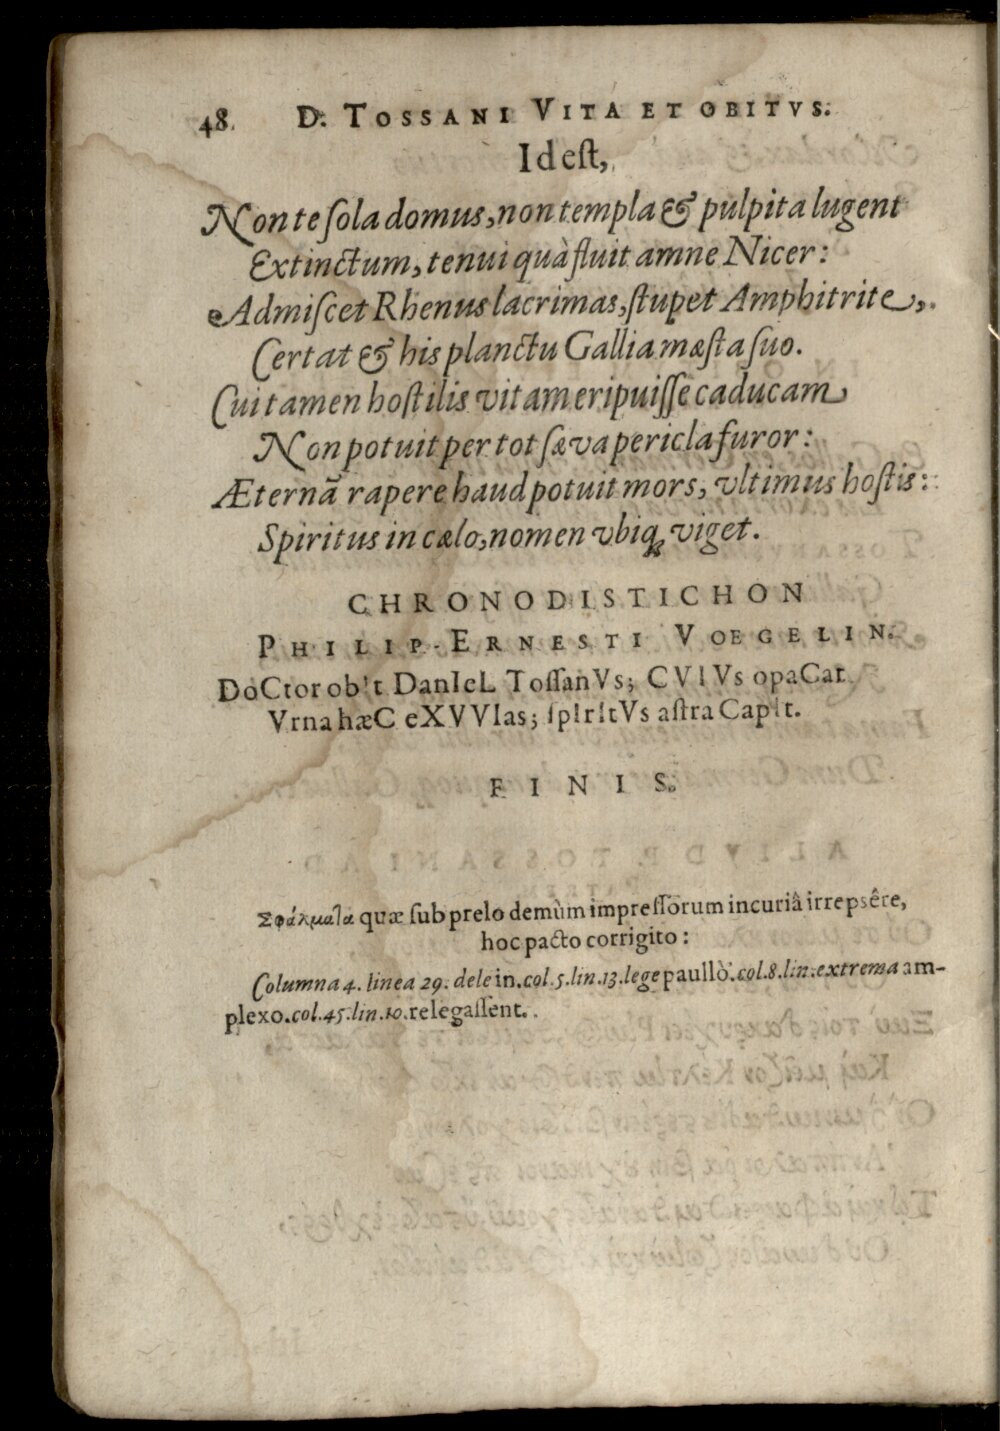 48. D. TOSSANI VITA ET OBITVS.
Id est,
Non te ſola domus, non templa & pulpita lugent
Extinctum, tenui quà fluit amne Nicer:
Admiſcet Rhenus lacrimas, ſtupet Amphitrite,
Certat & his planctu Gallia mæſta ſuo.
Cui tamen hoſtilis vitam eripuiſſe caducam
Non potuit per tot ſæva pericla furor:
Æternā rapere haud potuit mors, vltimus hoſtis:
Spiritus in cælo, nomen vbiq́; viget.
CHRONODISTICHON
PHILIP-ERNESTI VOEGELIN.
DoCtor obIt DanIeL ToſſanVs; CVIVs opaCat
Vrna hæC eXVVIas; ſpIrItVs aſtra CapIt.
FINIS.
Σφάλματα quæ ſub prelo demùm impreſſorum incuriâ irrepsêre,
hoc pacto corrigito:
Columna 4. linea 29. dele in. col. 5. lin. 13. lege paullò. col. 8. lin. extrema am-
plexo. col. 45. lin. 10. relegaſſent.